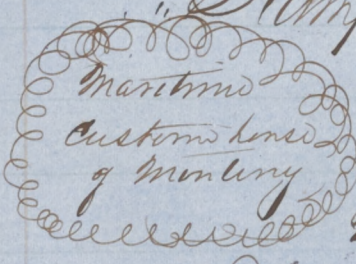 Stamp
Maritime
Custom house
of Monterey